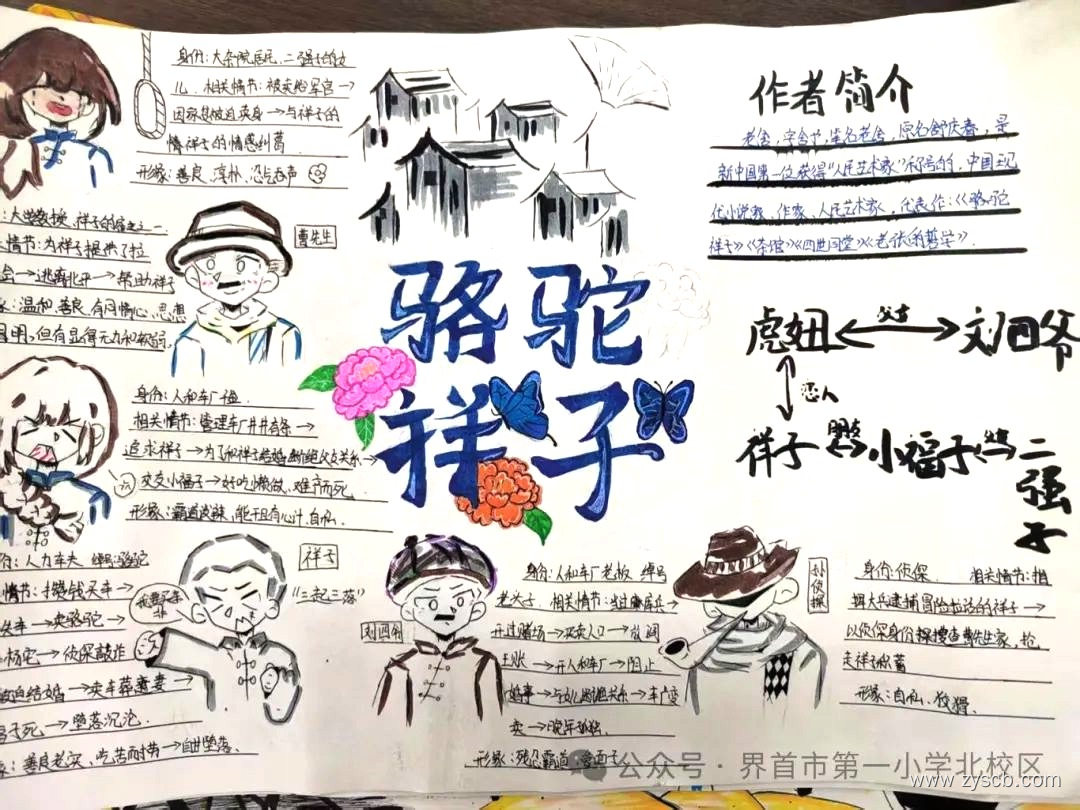 身份:大杂院居民,二强子的女
儿.相关情节:被卖给军官→
因家贫被迫卖身→与祥子的
情祥子的情感纠葛
形象:善良、淳朴、忍气吞声
:大学教授、祥子的雇主之一
情节:为祥子提供了拉
→逃离北平→帮助祥子
:温和、善良、有同情心、思想
明,但有显得无力和软弱.
曹先生
身份:人和车厂
相关情节:管理车厂井井有条→
追求祥子→为了和祥子结婚断绝父女关系→
交小福子→好吃懒做、难产而死.
形象:霸道泼辣、能干且有心计、自私.
份:人力车夫 绰号:骆驼
情节:攒钱买车→
失车→卖骆驼→
杨宅→侦探敲诈
被迫结婚→卖车葬妻
子死→堕落沉沦.
象:善良老实、吃苦耐劳→自甘堕落.
祥子
"三起三落"
骆驼
祥子
作者简介
老舍,字舍予,笔名老舍,原名舒庆春,是
新中国第一位获得"人民艺术家"称号的,中国现
代小说家、作家、人民艺术家,代表作:《骆驼
祥子》《茶馆》《四世同堂》《老张的哲学》.
虎妞 父女 刘四爷
恋人
祥子 朋友 小福子 父女 二
强
子
刘四爷
身份:人和车厂老板 绰号
老头子. 相关情节:当过库兵→
开过赌场→买卖人口→放阎
王账→开人和车厂→阻止
婚事→与女儿断绝关系→车厂变
卖→晚年孤独.
形象:残忍霸道、爱面子
孙侦探
身份:侦探. 相关情节:指
挥大兵逮捕冒险拉活的祥子→
以侦探身份探搜查曹先生家,抢
走祥子积蓄
形象:自私、狡猾.
公众号·界首市第一小学北校区
www.zyscb.com